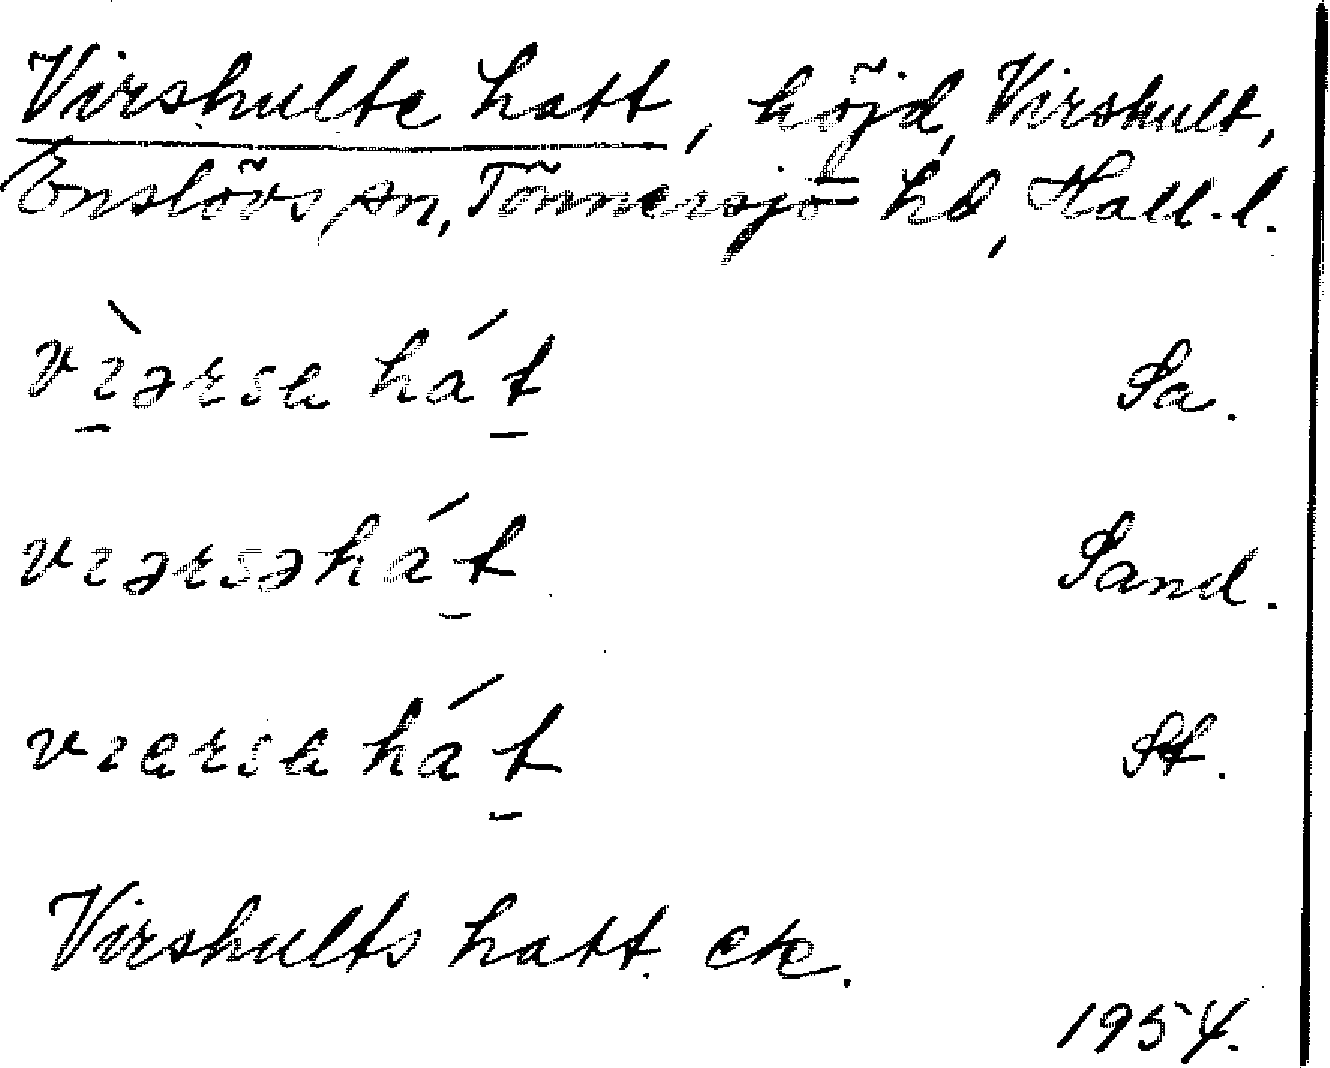 Virshulte hatt, höjd, Virshult,
Enslövs sn, Tönnersjö hd, Hall.l.
vìərsa hát Sa.
vıərsəhát Sand.
vıɐrsa hát St.
Virshults hatt. ek.
1954.